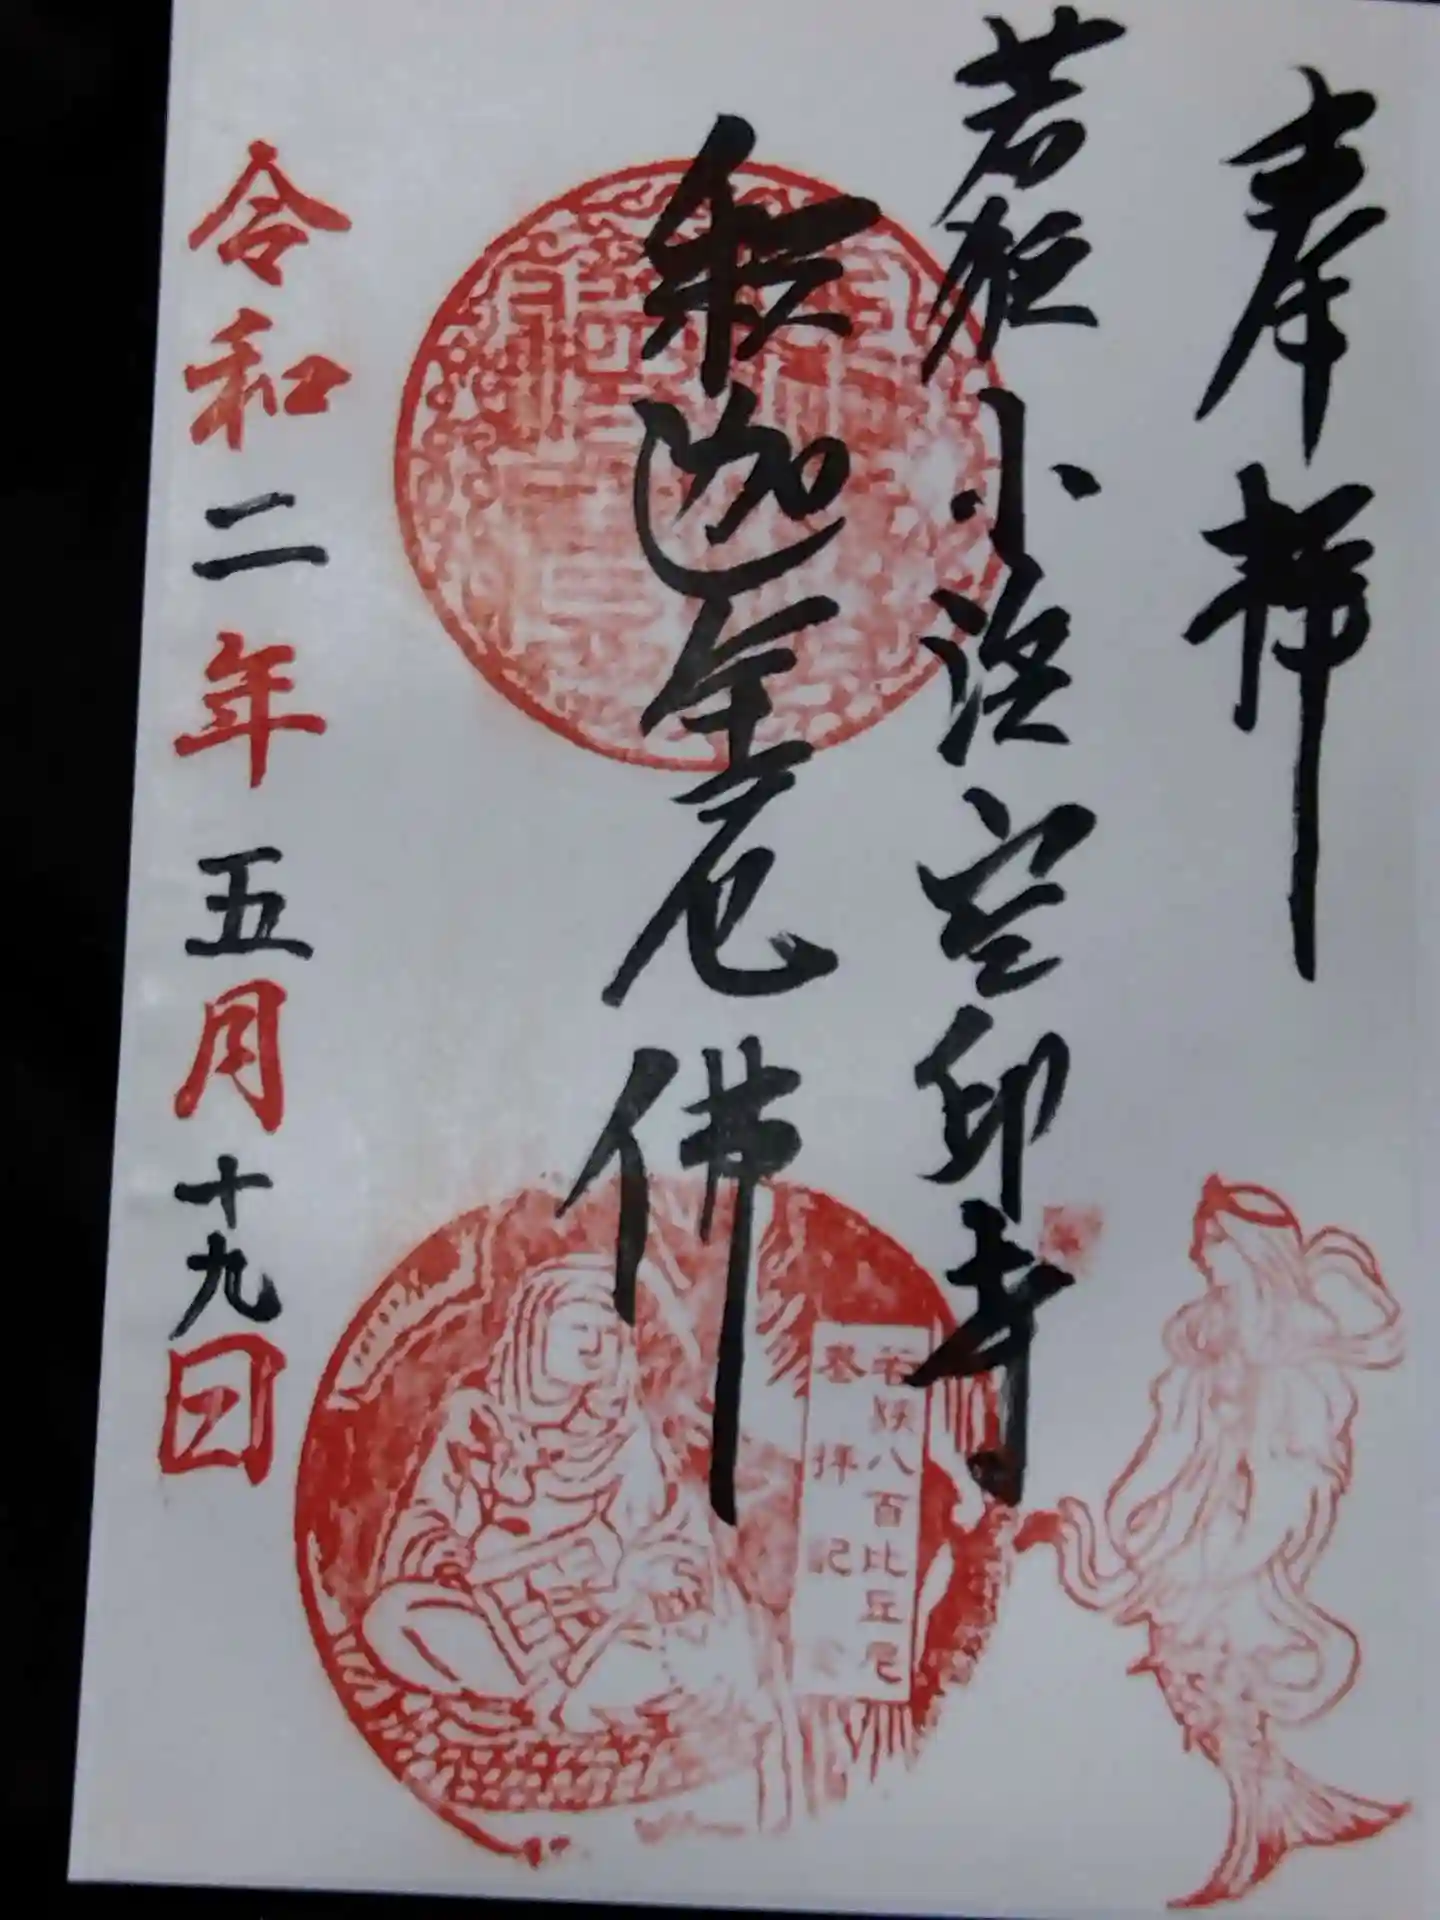 奉拝
若狭小浜空印寺
釈迦牟尼佛
令和二年五月十九日
若狭八百比丘尼
参拝記念